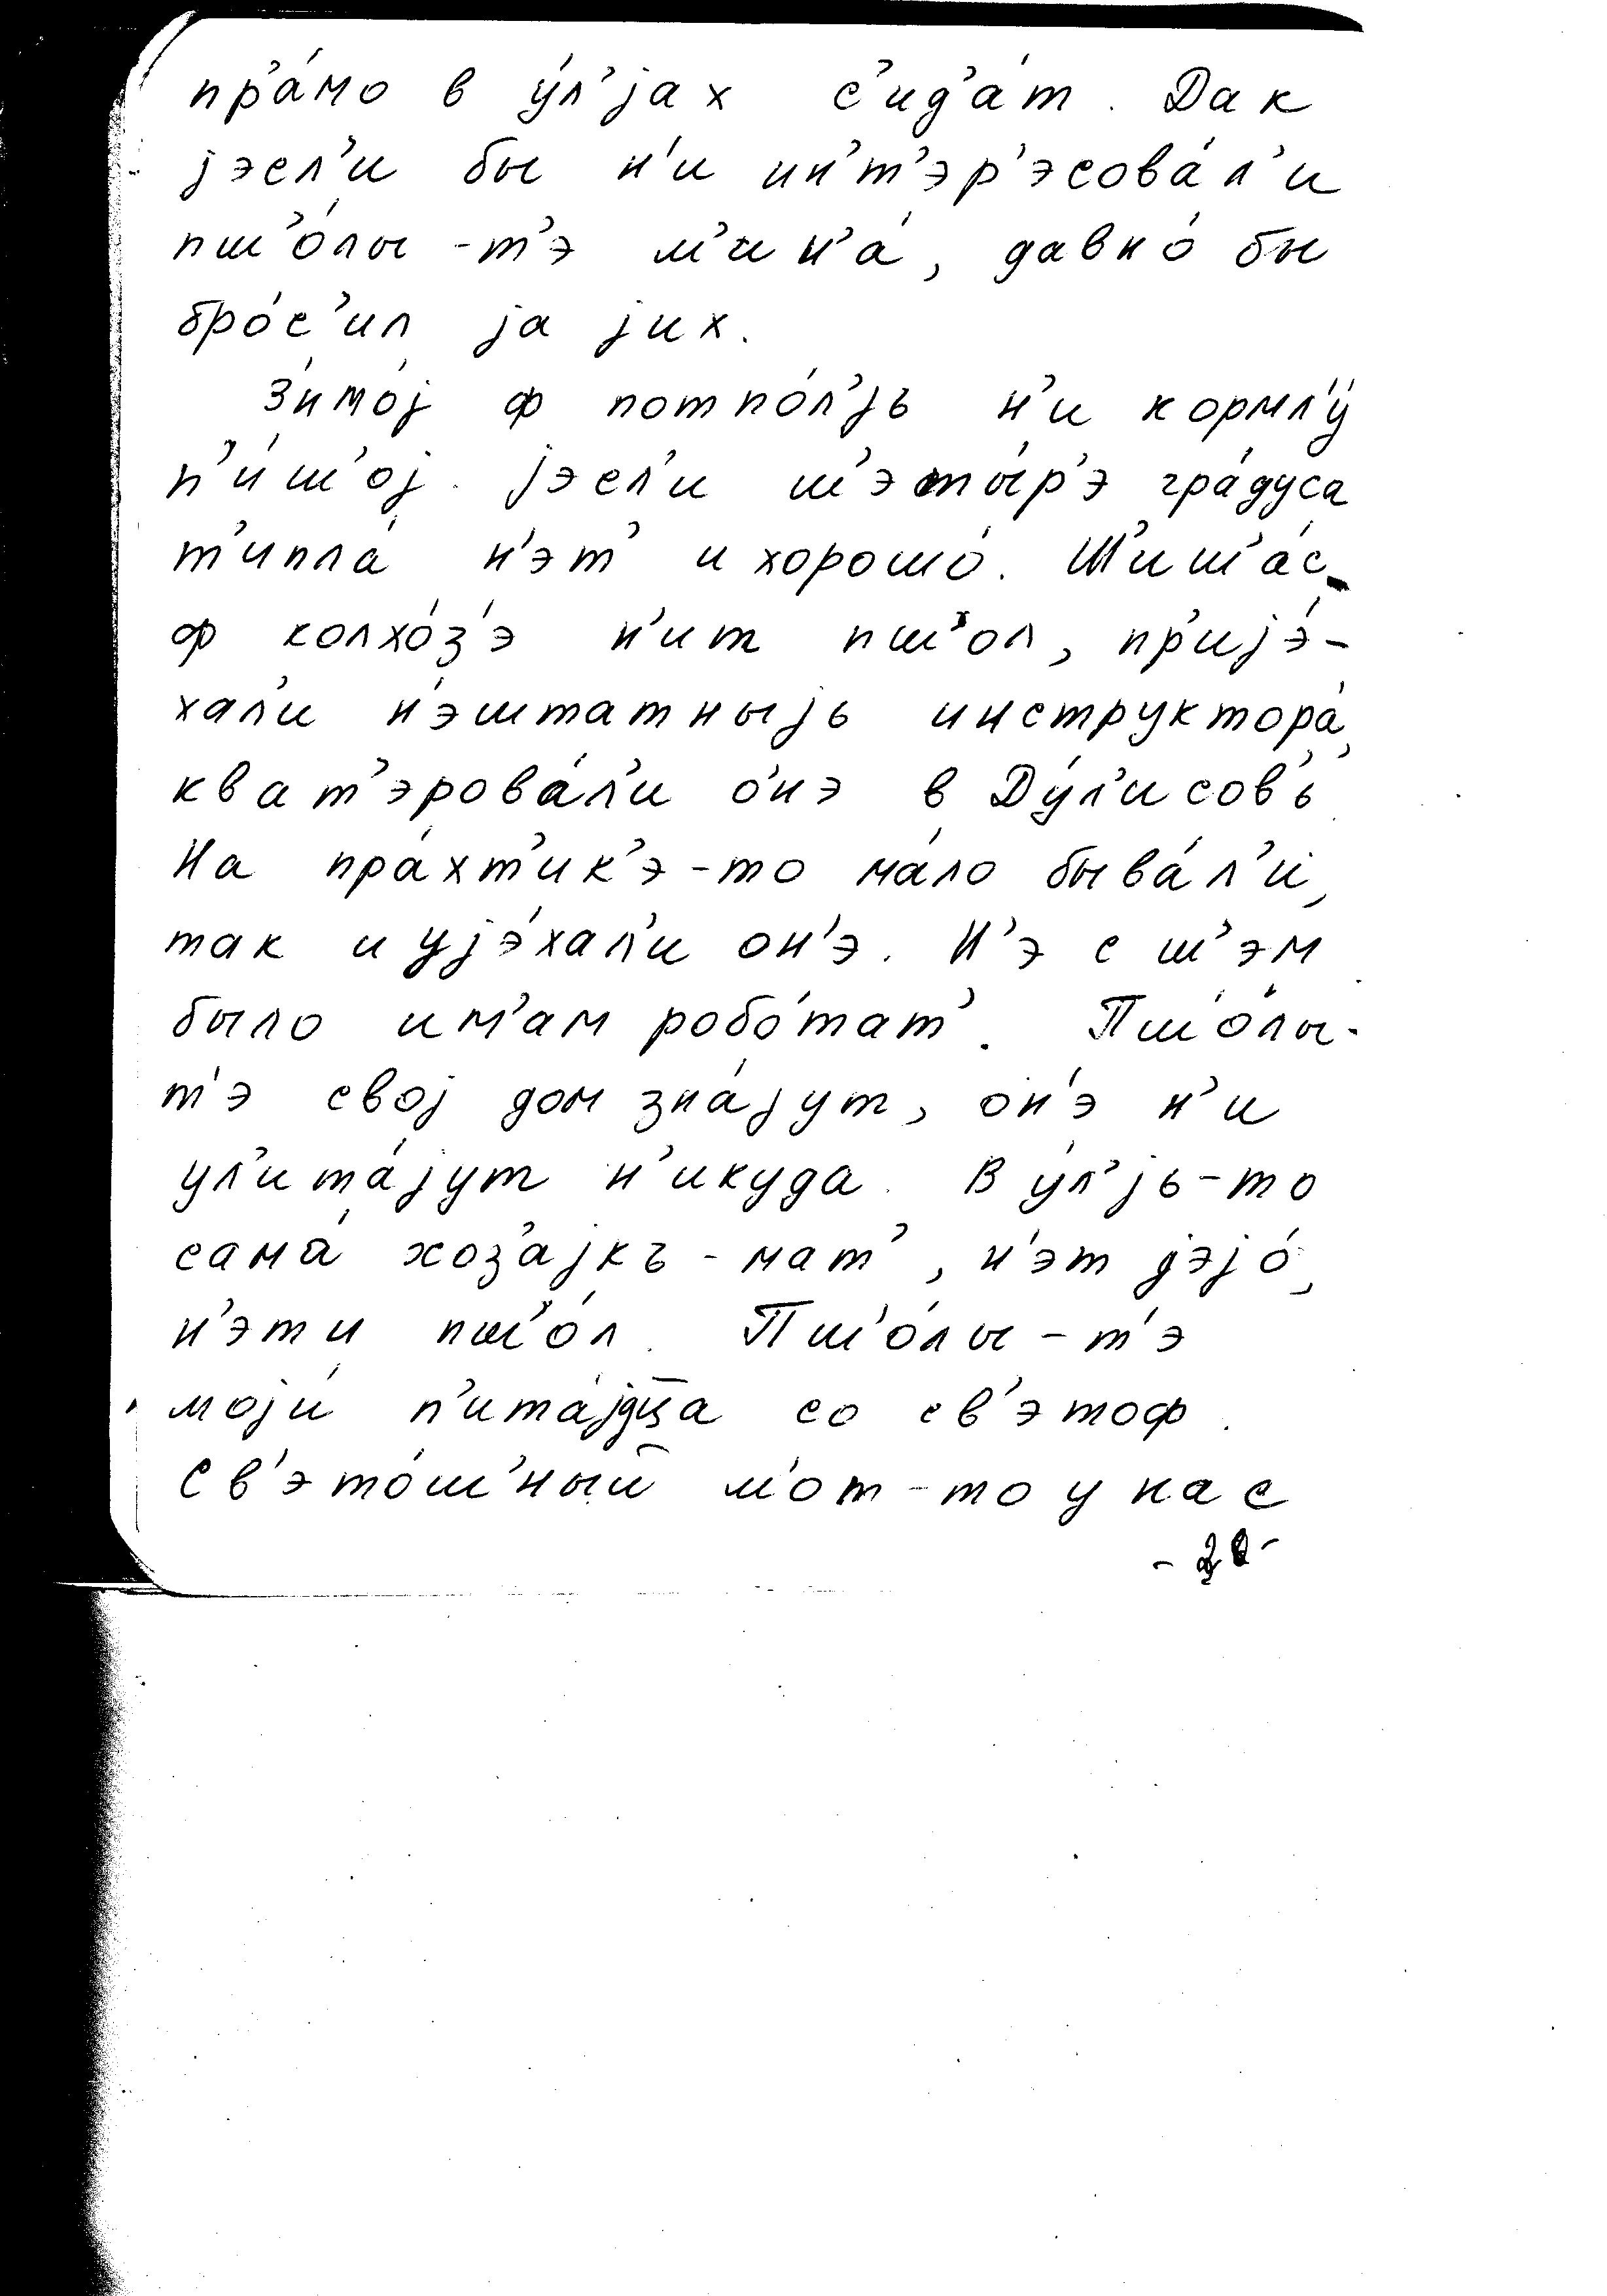 пр'а́мо в у́л'jах с'ид'а́т. Дак
jэсл'и бы н'и ин'т'эр'эсова́л'и
пш'о́лы-т'э м'ин'а́, давно́ бы
бро́с'ил jа jих.
З'имо́j ф потпо́л'jь н'и кормл'у́
п'и́ш'оj. Jэсл'и ш'эты́р'э гра́дуса
т'ипла́ н'эт' и хорошо́. Ш'иш'а́с
ф колхо́з'э н'ит пш'ол, пр'иjэ́-
хал'и н'эштатныjь инструктора́,
кват'эрова́л'и о́нэ в Ду́л'исов'ь.
На пра́хт'ик'э-то ма́ло быва́л'и,
так и уjэ́хал'и он'э. Н'э с ш'эм
было им'ам робо́тат'. Пш'о́лы-
т'э своj дом зна́jут, он'э н'и
ул'ита́jут н'икуда. В у́л'jь-то
сама́ хоз'а́jкъ-мат', н'эт jэjо́,
н'эти пш'о́л. Пш'о́лы-т'э
моjи́ п'ита́jуца со св'этоф.
Св'это́ш'ный м'от-то у нас
-20-